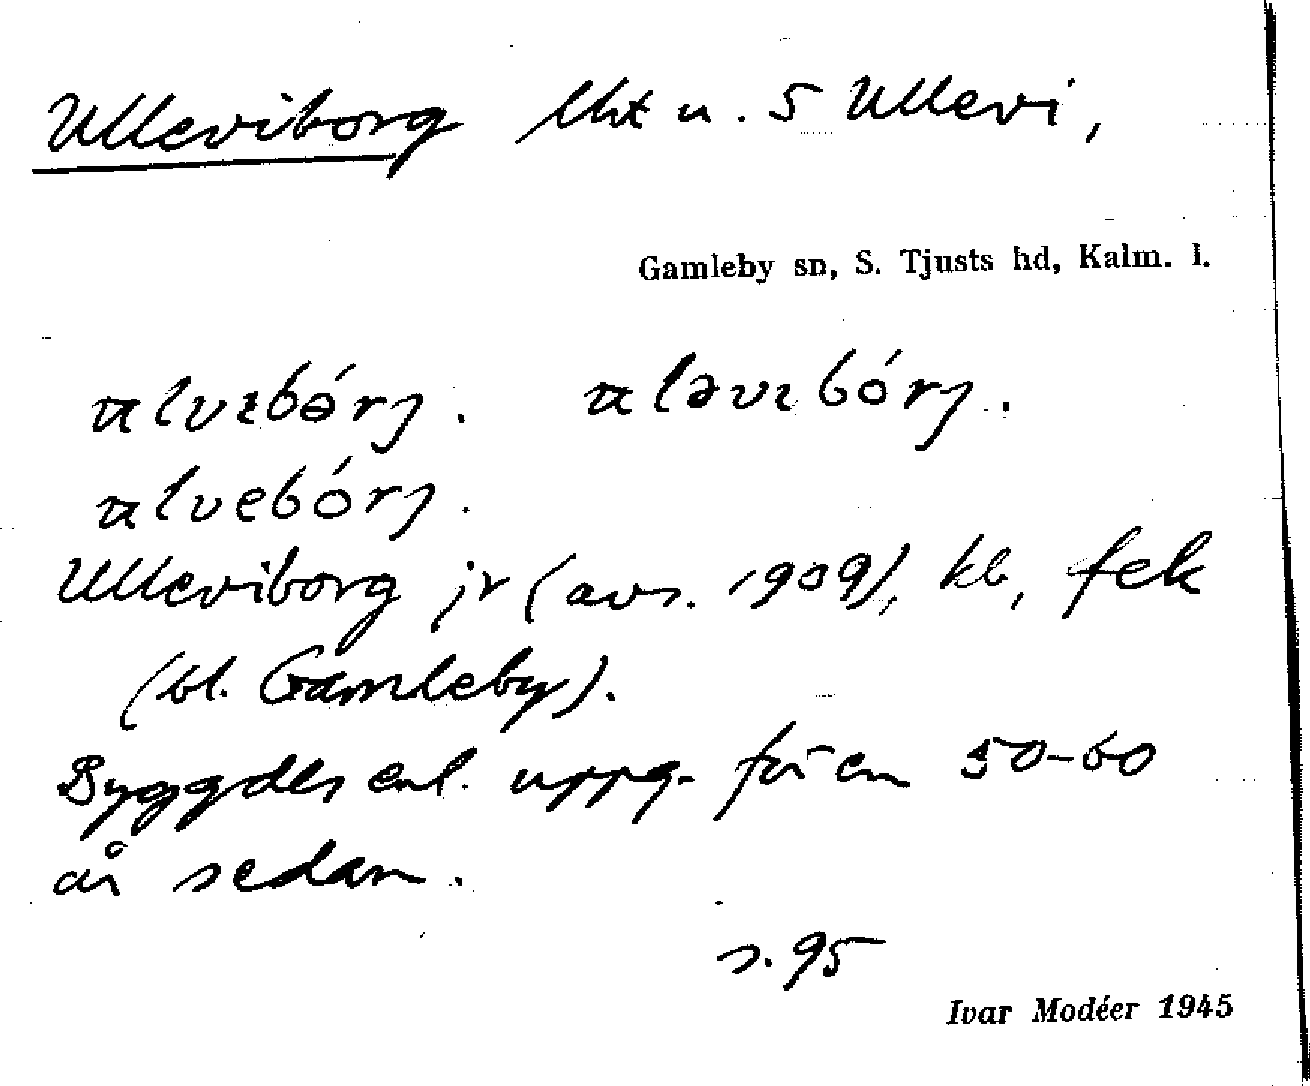 Ulleviborg lht u. S Ullevi,
Gamleby sn, S. Tjusts hd, Kalm. l.
Ulleviborg jr (avs. 1909), kb, fek
(bl. Gamleby).
Byggdes enl. uppg. för en 50-60
år sedan.
s. 95
Ivar Modéer 1945